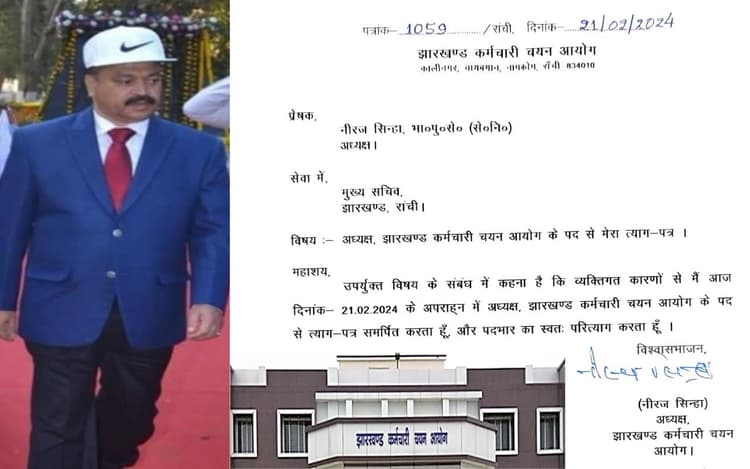 पत्रांक- 1059 /रांची, दिनांक- 21/02/2024
झारखण्ड कर्मचारी चयन आयोग
कालीनगर, चायबगान, नामकोम, राँची 834010
प्रेषक,
नीरज सिन्हा, भा०पु०से० (से०नि०)
अध्यक्ष।
सेवा में,
मुख्य सचिव,
झारखण्ड, रांची।
विषय :- अध्यक्ष, झारखण्ड कर्मचारी चयन आयोग के पद से मेरा त्याग-पत्र ।
महाशय,
उपर्युक्त विषय के संबंध में कहना है कि व्यक्तिगत कारणों से मैं आज
दिनांक- 21.02.2024 के अपराह्न में अध्यक्ष, झारखण्ड कर्मचारी चयन आयोग के पद
से त्याग-पत्र समर्पित करता हूँ, और पदभार का स्वतः परित्याग करता हूँ ।
विश्वासभाजन,
(नीरज सिन्हा)
अध्यक्ष,
झारखण्ड कर्मचारी चयन
आयोग।
झारखण्ड कर्मचारी चयन आयोग